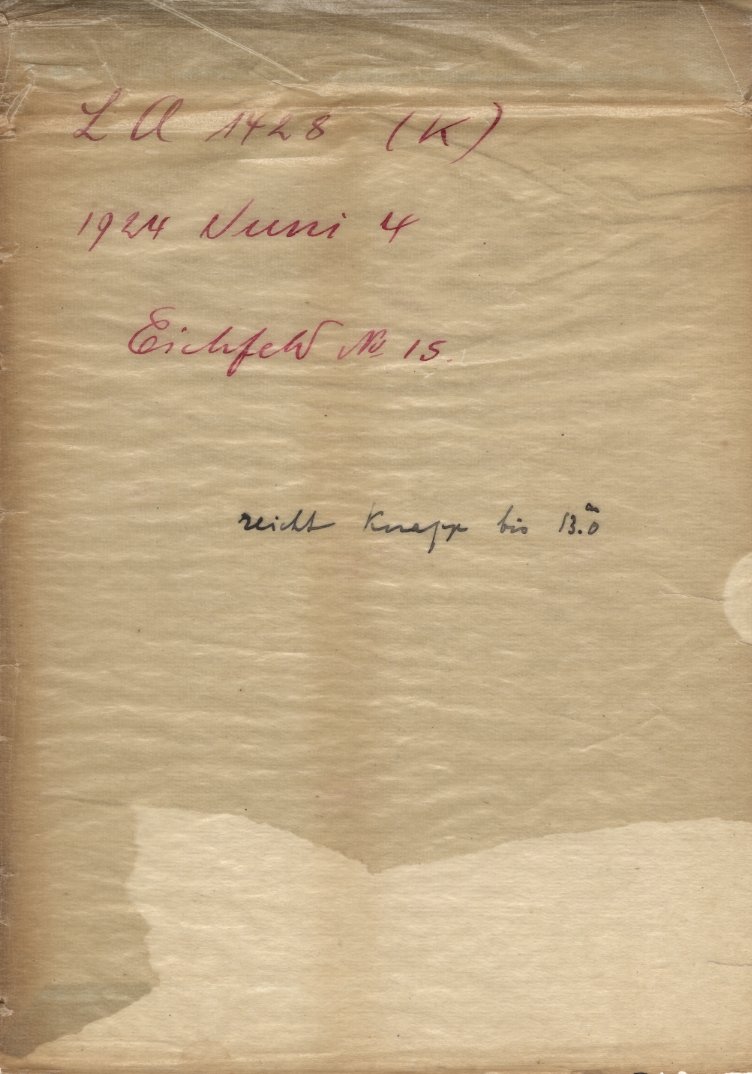 LA 1428 (K)
1924 Juni 4
Eichfeld No 15.
reicht Knapp bis 13.